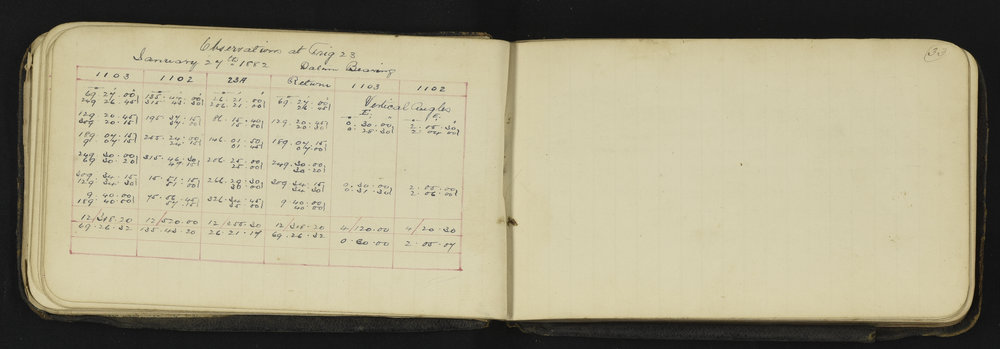 Observations at Trig 23
January 27th 1882 Datum Bearing
1103 1102 23A Return 1103 1102
Vertical Angles
69. 27. 00 135. 44. 00 26. 21. 00 69. 27. 00
249. 26. 45 315. 43. 30 206. 21. 20 26. 45
129. 20. 45 195. 37. 15 86. 15. 40 129. 20. 45 0. 30. 00 2. 05. 30
309. 20. 15 37. 00 15. 00 20. 30 0. 28. 30 2. 04. 00
189. 07. 15 255. 24. 00 146. 01. 50 189. 07. 15
9. 07. 15 24. 15 01. 45 07. 00
249. 30. 00 315. 46. 30 206. 25. 00 249. 30. 00
69. 30. 20 47. 15 25. 00 30. 20
309. 34. 15 15. 51. 15 266. 29. 30 309. 34. 15 0. 30. 00 2. 05. 00
129. 34. 30 51. 00 30. 00 34. 30 0. 31. 30 2. 06. 00
9. 40. 00 75. 56. 45 326. 34. 45 9. 40. 00
189. 40. 00 57. 15 35. 00 40. 00
12/318. 20 12/520. 00 12/255. 30 12/318. 20 4/120. 00 4/20. 30
69. 26. 32 135. 43. 20 26. 21. 17 69. 26. 32
0. 30. 00 2. 05. 07
33